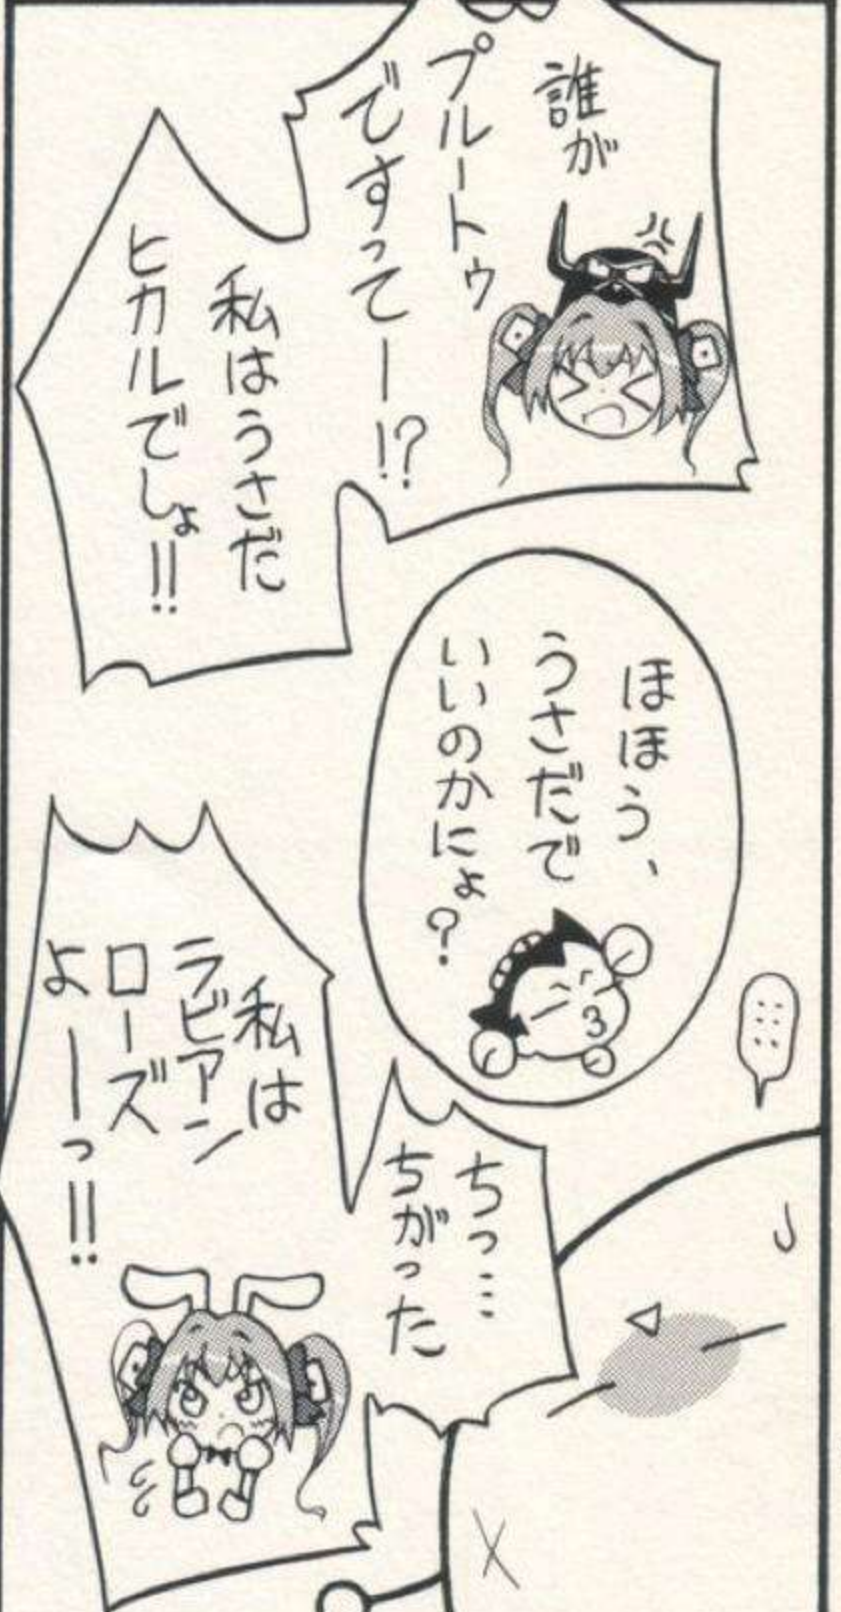 誰が
プルートゥ
ですってー!?
私はうさだ
ヒカルでしょ!!
ほほう、
うさだで
いいのかにょ?
……
ちっ…
ちがった
私は
ラビアン
ローズ
よーっ!!